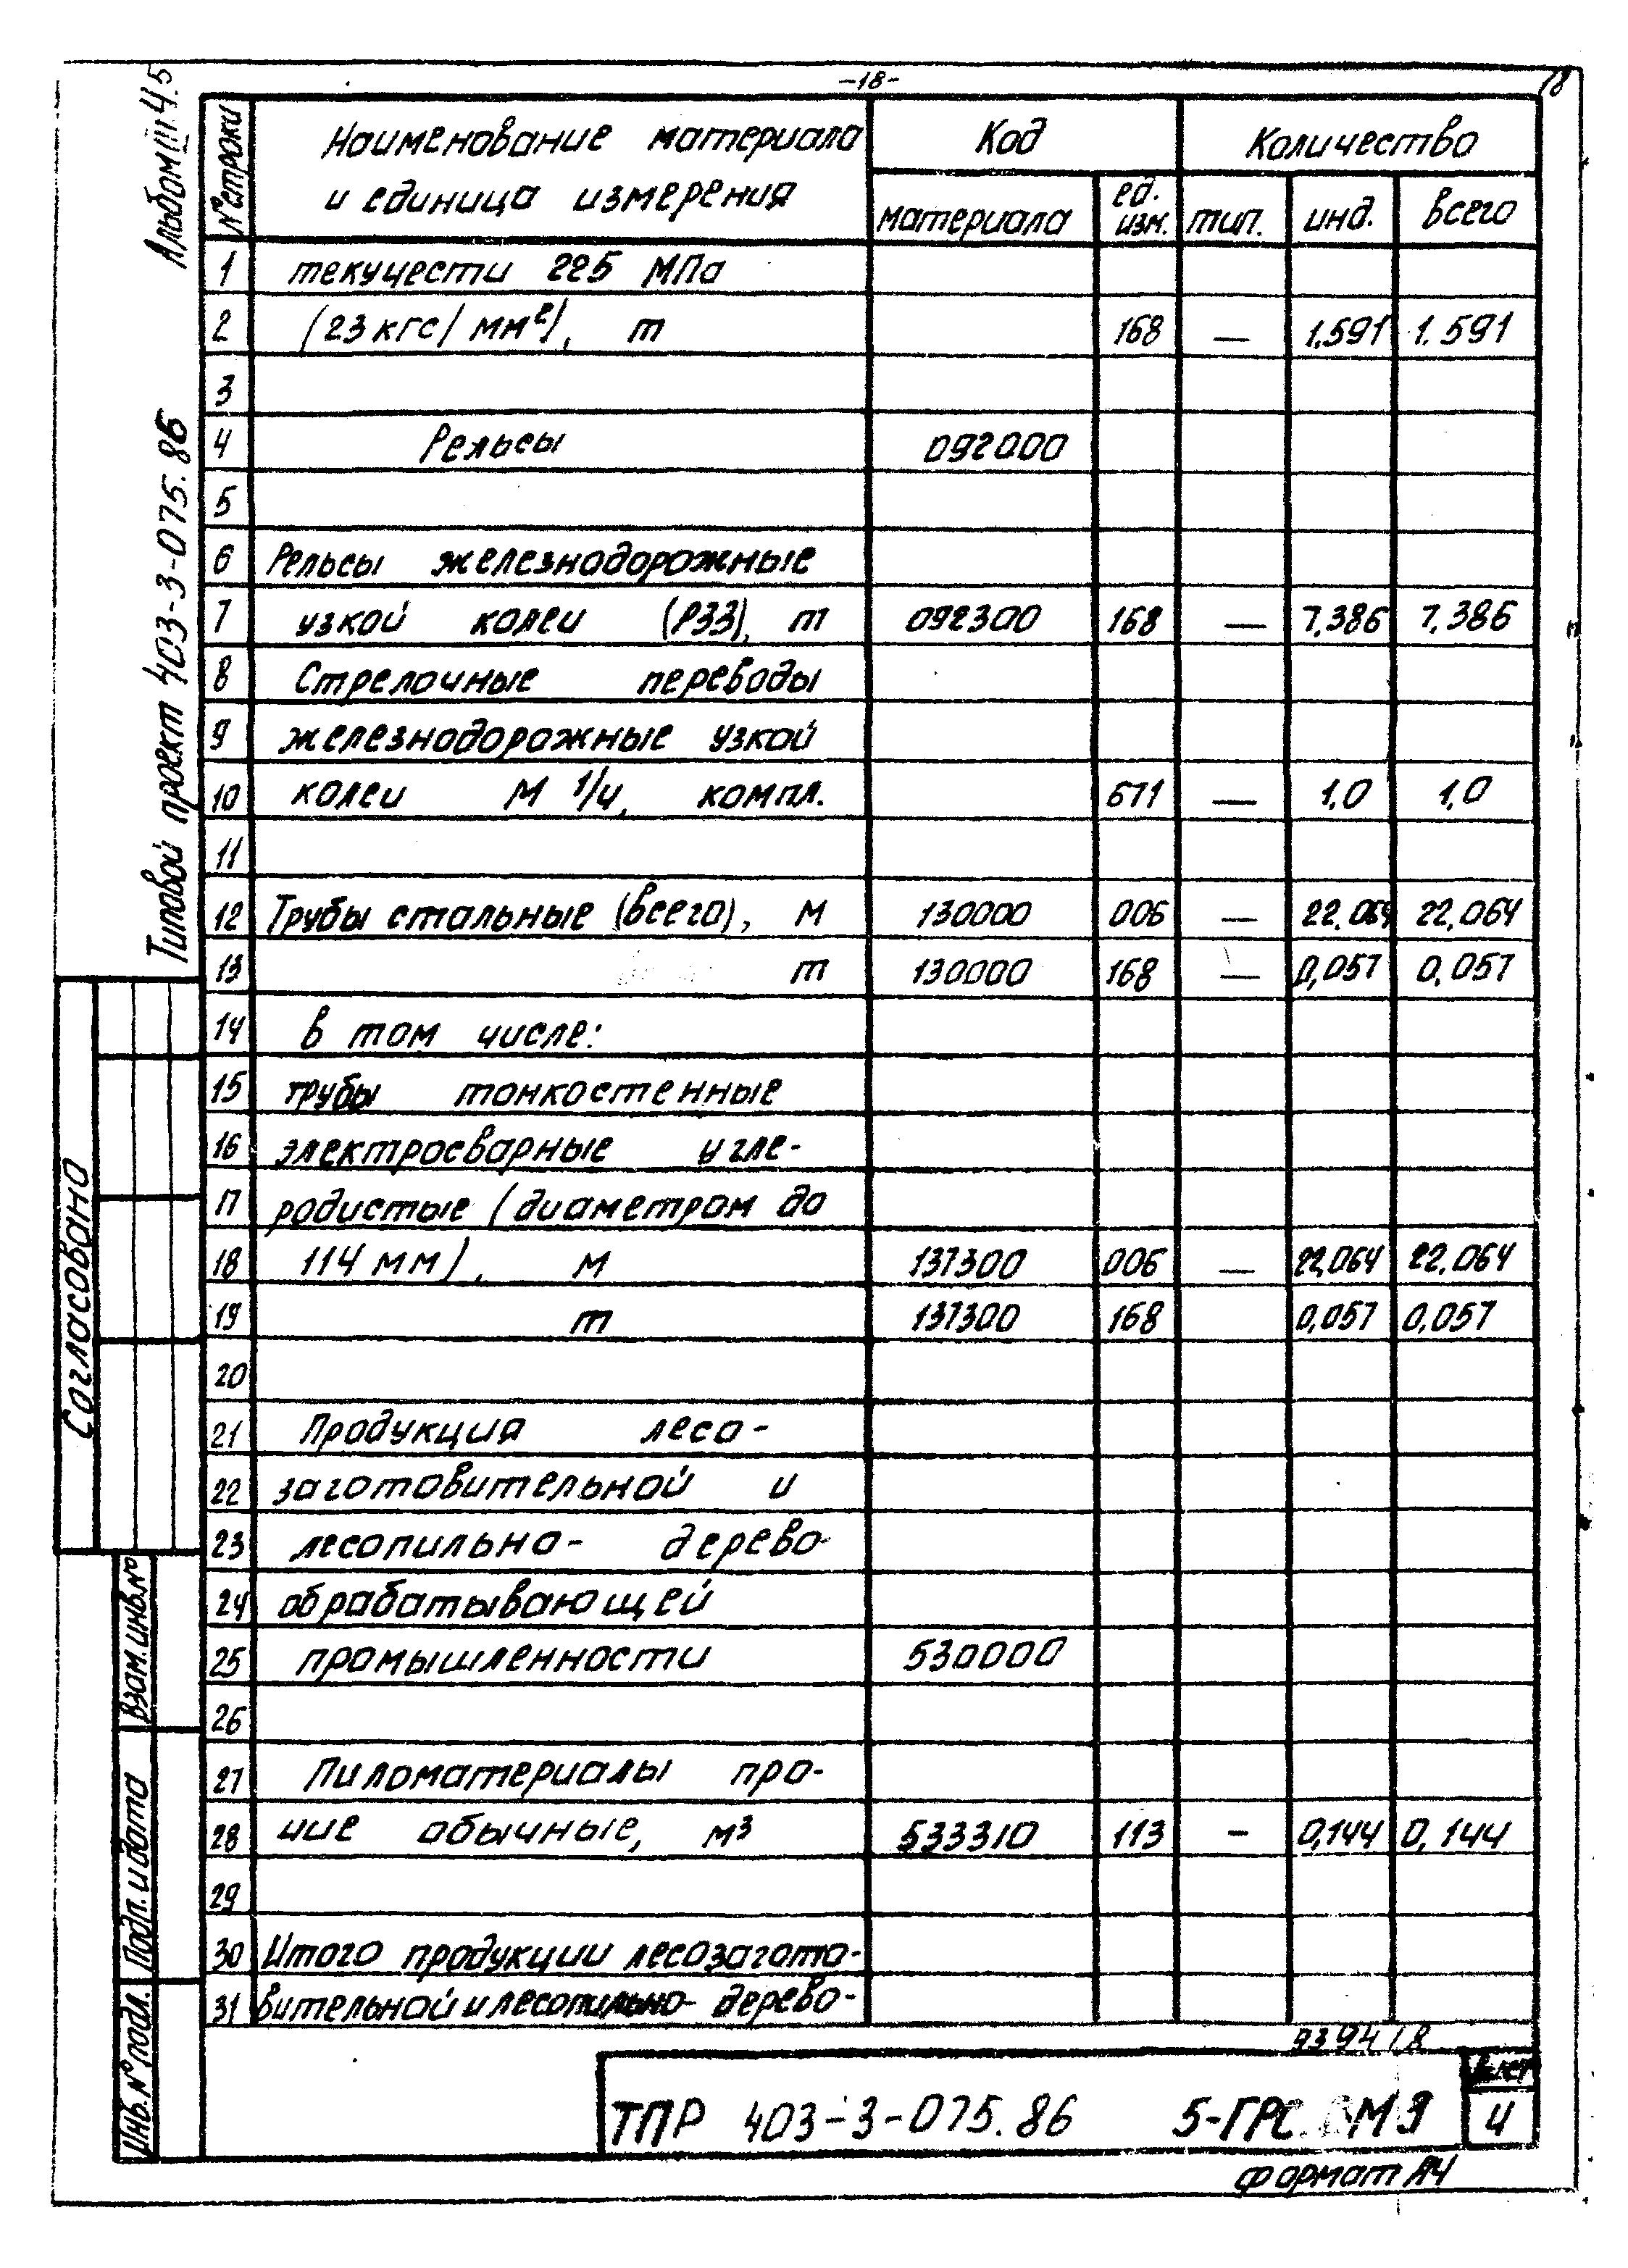 -18-
18
Альбом III ч.5
Типовой проект 403-3-075.86
Согласовано
Взам. инв. №
Подп. и дата
Инв. № подл.
№ строки | Наименование материала и единица измерения | Код | Количество
материала | ед. изм. | тип. | инд. | всего
1 текучести 225 МПа
2 (23 кгс/мм²), т 168 — 1.591 1.591
3
4 Рельсы 092000
5
6 Рельсы железнодорожные
7 узкой колеи (Р33), т 092300 168 — 7.386 7.386
8 Стрелочные переводы
9 железнодорожные узкой
10 колеи М 1/4, компл. 671 — 1,0 1,0
11
12 Трубы стальные (всего), м 130000 006 — 22.064 22,064
13 т 130000 168 — 0,057 0,057
14 в том числе:
15 трубы тонкостенные
16 электросварные угле-
17 родистые (диаметром до
18 114 мм), м 137300 006 — 22,064 22,064
19 т 137300 168 0,057 0,057
20
21 Продукция лесо-
22 заготовительной и
23 лесопильно- дерево-
24 обрабатывающей
25 промышленности 530000
26
27 Пиломатериалы про-
28 чие обычные, м³ 533310 113 - 0,144 0,144
29
30 Итого продукции лесозагото-
31 вительной и лесопильно- дерево-
9394/8
ТПР 403-3-075.86 5-ГРС. М9
Лист
4
формат А4